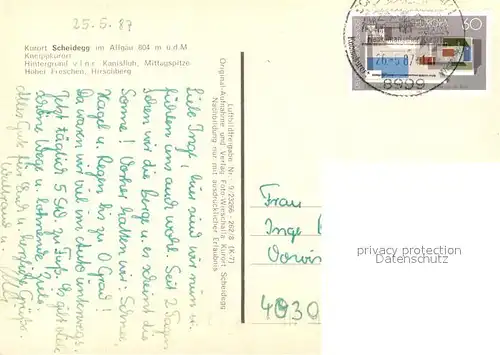 25.5.87
Kurort Scheidegg im Allgäu 804 m ü.d.M
Kneippkurort
Hintergrund v.l.n.r. Kanisfluh, Mittagspitze
Hoher Freschen, Hirschberg
Liebe Inge! hier sind wir nun u.
fühlen uns auch wohl. Seit 2 Tagen
sehen wir die Berge u. es scheint die
Sonne! Vorher hatten wir: Schnee,
Hagel u. Regen bis zu 0 Grad!
Da waren wir viel im Auto unterwegs.
Jetzt täglich 5 Std. zu Fuß. Es gibt viele
schöne Wege u. lohnende Ziele.
Alles Gute für Dich u. herzliche Grüße.
Waltraud u.
Luftbildfreigabe Nr. 9/23266 - 262/8 (K-7)
Original-Aufnahme und Verlag Foto-Wirschalla Kurort Scheidegg
Nachbildung nur mit ausdrücklicher Erlaubnis
EUROPA
60
26.-5.87
8999
Frau
Inge
4030
privacy protection
Datenschutz